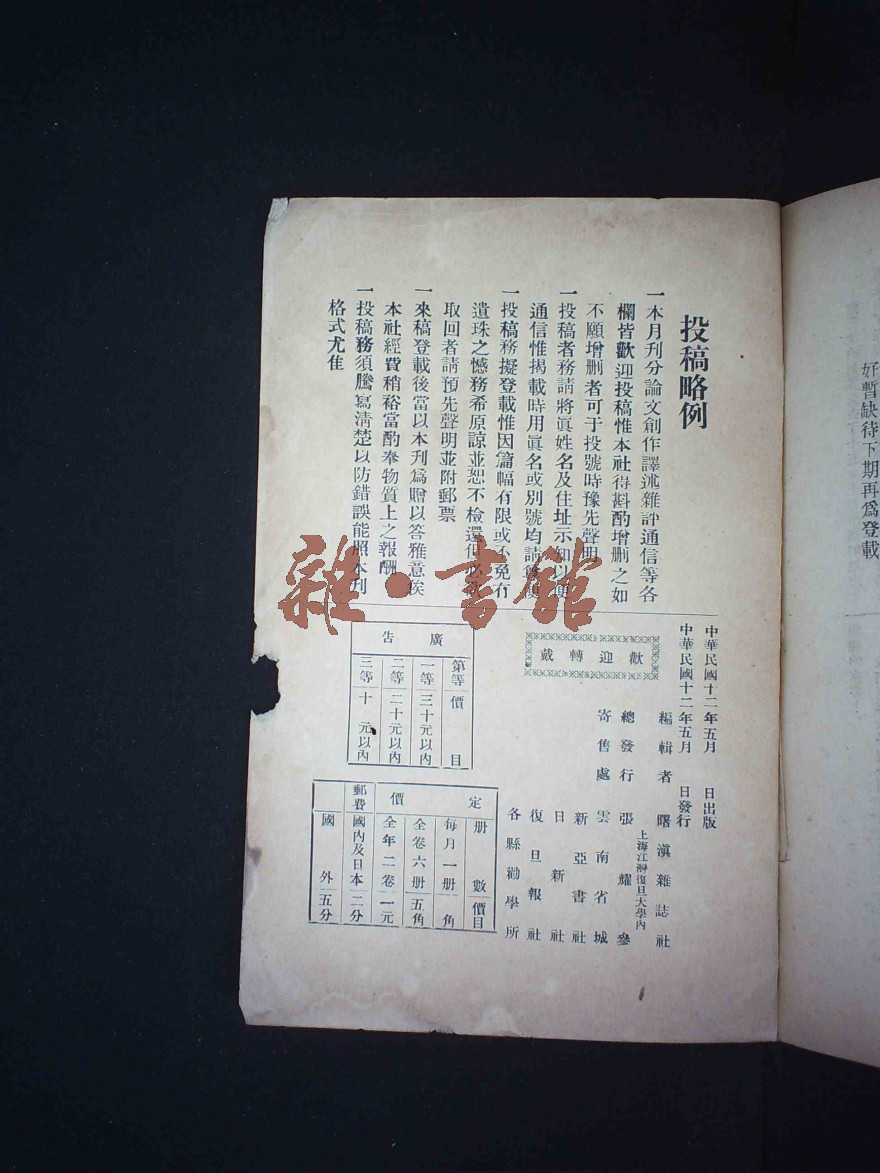 投稿略例
一本月刊分論文創作譯述雜評通信等各
欄皆歡迎投稿惟本社得斟酌增刪之如
不願增刪者可于投號時豫先聲明
一投稿者務請將眞姓名及住址示知以便
通信惟揭載時用眞名或別號均請
一投稿務擬登載惟因篇幅有限或不免有
遺珠之憾務希原諒並恕不檢還
取回者請預先聲明並附郵票
一來稿登載後當以本刊爲贈以答雅意俟
本社經費稍裕當酌奉物質上之報酬
一投稿務須騰寫淸楚以防錯誤能照本刊
格式尤佳
中華民國十二年五月 日出版
中華民國十二年五月 日發行
編輯者 曙滇雜誌社
上海江灣復旦大學內
總發行 張耀參
寄售處 雲南省城
新亞書社
日新社
復旦報社
各縣勸學所
歡迎轉戴
廣告
第等 價目
一等 三十元以內
二等 二十元以內
三等 十元以內
定價
册數 價目
每月一册 一角
全卷六册 五角
全年二卷 一元
郵費
國內及日本 二分
國外 五分
好暫缺待下期再爲登載
雜·書館